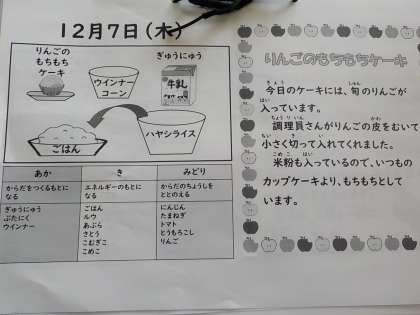 12月7日（木）
りんごの
もちもち
ケーキ
ウインナー
コーン
ぎゅうにゅう
牛乳
ハヤシライス
ごはん
あか
き
みどり
からだをつくるもとに
なる
エネルギーのもとに
なる
からだのちょうしを
ととのえる
ぎゅうにゅう
ぶたにく
ウインナー
ごはん
ルウ
あぶら
さとう
こむぎこ
こめこ
にんじん
たまねぎ
トマト
とうもろこし
りんご
りんごのもちもちケーキ
きょう しゅん
今日のケーキには、旬のりんごが
はい
入っています。
ちょうりいん かわ
調理員さんがりんごの皮をむいて
ちい き い
小さく切って入れてくれました。
こめこ はい
米粉も入っているので、いつもの
カップケーキより、もちもちとして
います。